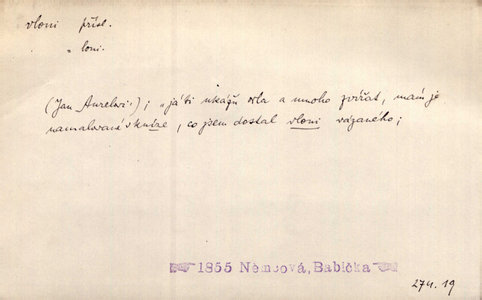 vloni přísl.
„ loni.
(Jan Aurelvi.); „já ti ukážu orla a mnoho zvířat, mám je
namalovaná v knize, co jsem dostal vloni vázaného;
1855 Němcová, Babička
274. 19